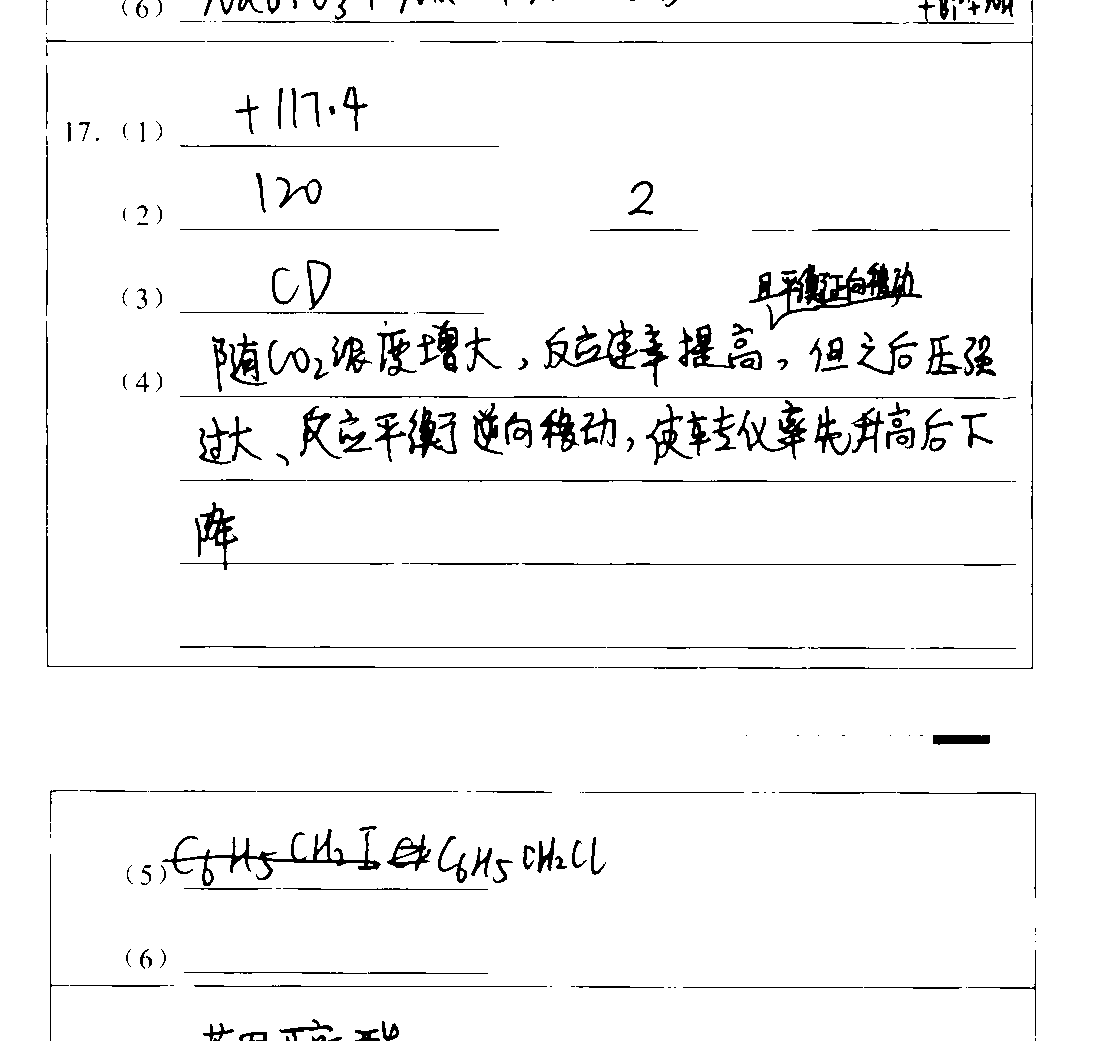 (6)
17. (1) +117.4
(2) 120 2
(3) CD
且平衡正向移动
(4) 随CO₂浓度增大，反应速率提高，但之后压强
过大、反应平衡逆向移动，使转化率先升高后下
降
(5) C₆H₅CH₂I C₆H₅CH₂Cl
(6)